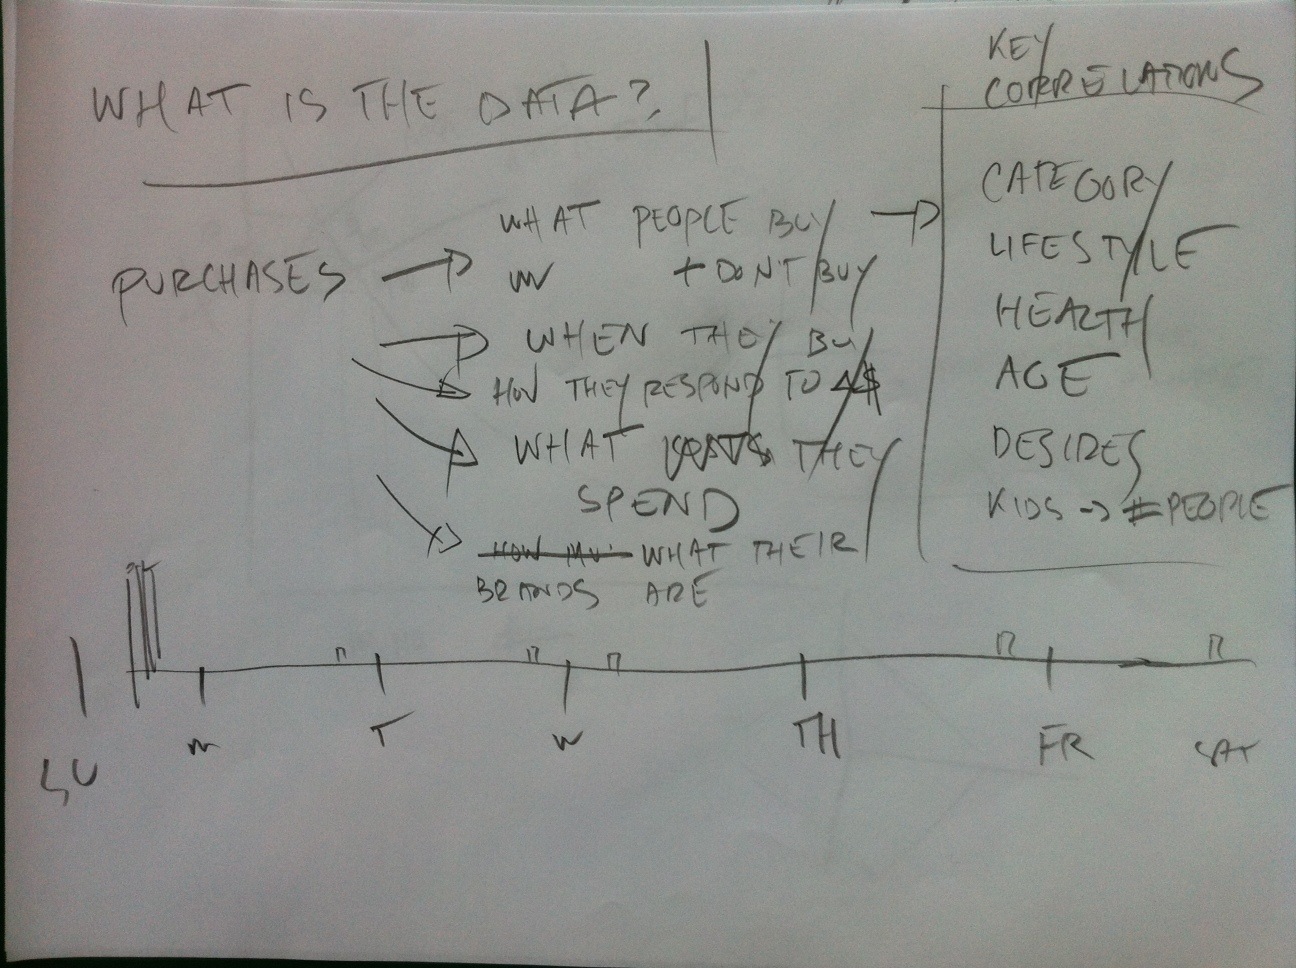 WHAT IS THE DATA?
KEY
CORRELATIONS
PURCHASES
WHAT PEOPLE BUY
+ DON'T BUY
WHEN THEY BUY
HOW THEY RESPOND TO Δ$
WHAT THEY
SPEND
HOW MU WHAT THEIR
BRANDS ARE
CATEGORY
LIFESTYLE
HEALTH
AGE
DESIRES
KIDS → # PEOPLE
SU M T W TH FR SAT